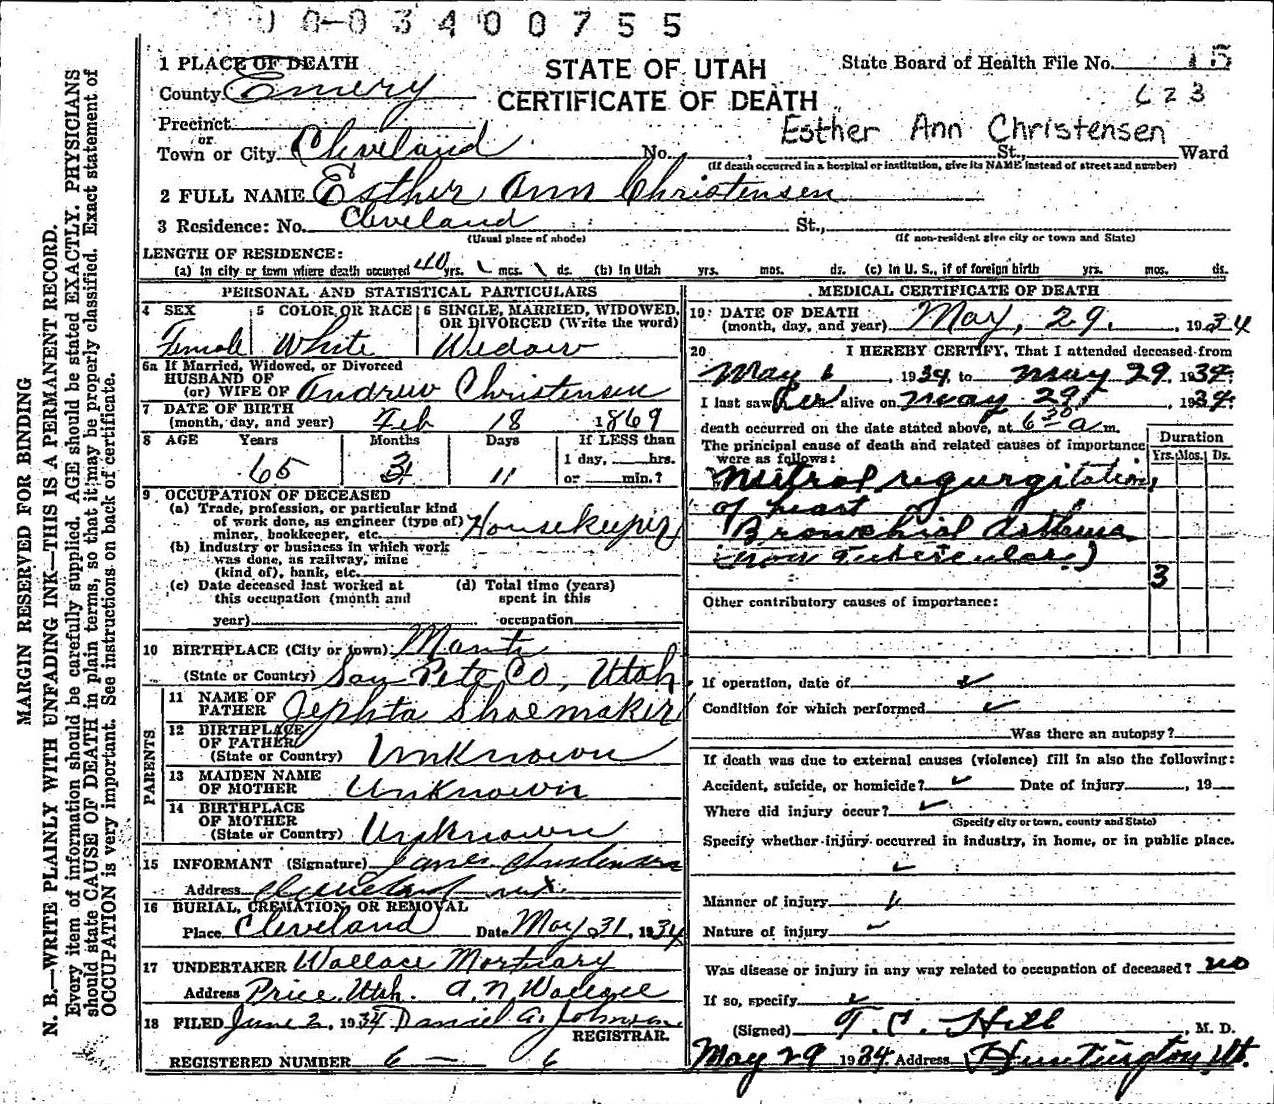 0 0-0 3 4 0 0 7 5 5
MARGIN RESERVED FOR BINDING
N. B.—WRITE PLAINLY WITH UNFADING INK—THIS IS A PERMANENT RECORD.
Every item of information should be carefully supplied. AGE should be stated EXACTLY. PHYSICIANS
should state CAUSE OF DEATH in plain terms, so that it may be properly classified. Exact statement of
OCCUPATION is very important. See instructions on back of certificate.
1 PLACE OF DEATH
STATE OF UTAH
CERTIFICATE OF DEATH
State Board of Health File No. 15
623
County Emery
Precinct
or
Town or City Cleveland No. , St., Ward
Esther Ann Christensen
(If death occurred in a hospital or institution, give its NAME instead of street and number)
2 FULL NAME Esther Ann Christensen
3 Residence: No. Cleveland St.,
(Usual place of abode) (If non-resident give city or town and State)
LENGTH OF RESIDENCE:
(a) In city or town where death occurred 40 yrs. mos. ds. (b) In Utah yrs. mos. ds. (c) In U. S., if of foreign birth yrs. mos. ds.
PERSONAL AND STATISTICAL PARTICULARS
4 SEX Female
5 COLOR OR RACE White
6 SINGLE, MARRIED, WIDOWED, OR DIVORCED (Write the word) Widow
6a If Married, Widowed, or Divorced
HUSBAND OF
(or) WIFE OF Andrew Christensen
7 DATE OF BIRTH
(month, day, and year) Feb 18 1869
8 AGE Years Months Days If LESS than
1 day, hrs.
65 3 11 or min.?
9 OCCUPATION OF DECEASED
(a) Trade, profession, or particular kind
of work done, as engineer (type of)
miner, bookkeeper, etc. Housekeeper
(b) Industry or business in which work
was done, as railway, mine
(kind of), bank, etc.
(c) Date deceased last worked at
this occupation (month and
year)
(d) Total time (years)
spent in this
occupation
10 BIRTHPLACE (City or town) Manti
(State or Country) San Pete Co, Utah.
PARENTS
11 NAME OF
FATHER Jephta Shoemaker
12 BIRTHPLACE
OF FATHER
(State or Country) Unknown
13 MAIDEN NAME
OF MOTHER Unknown
14 BIRTHPLACE
OF MOTHER
(State or Country) Unknown
15 INFORMANT (Signature) James Christensen
Address Cleveland
16 BURIAL, CREMATION, OR REMOVAL
Place Cleveland Date May 31, 1934
17 UNDERTAKER Wallace Mortuary
Address Price, Utah. A. N. Wallace
18 FILED June 2, 1934 Daniel A. Johnson
REGISTRAR.
REGISTERED NUMBER 6 — 6
MEDICAL CERTIFICATE OF DEATH
19 DATE OF DEATH
(month, day, and year) May, 29, 1934
20 I HEREBY CERTIFY, That I attended deceased from
May 6, 1934, to May 29, 1934.
I last saw her alive on May 29, 1934.
death occurred on the date stated above, at 6 30 a.m.
The principal cause of death and related causes of importance
were as follows:
Duration
Yrs. Mos. Ds.
Mitral regurgitation
of heart
Bronchial asthma
(non Tubercular.)
3
Other contributory causes of importance:
If operation, date of
Condition for which performed
Was there an autopsy?
If death was due to external causes (violence) fill in also the following:
Accident, suicide, or homicide? Date of injury , 19
Where did injury occur?
(Specify city or town, county and State)
Specify whether injury occurred in industry, in home, or in public place.
Manner of injury
Nature of injury
Was disease or injury in any way related to occupation of deceased? no
If so, specify
(Signed) T. C. Hill , M. D.
May 29 1934 Address Huntington, Ut.